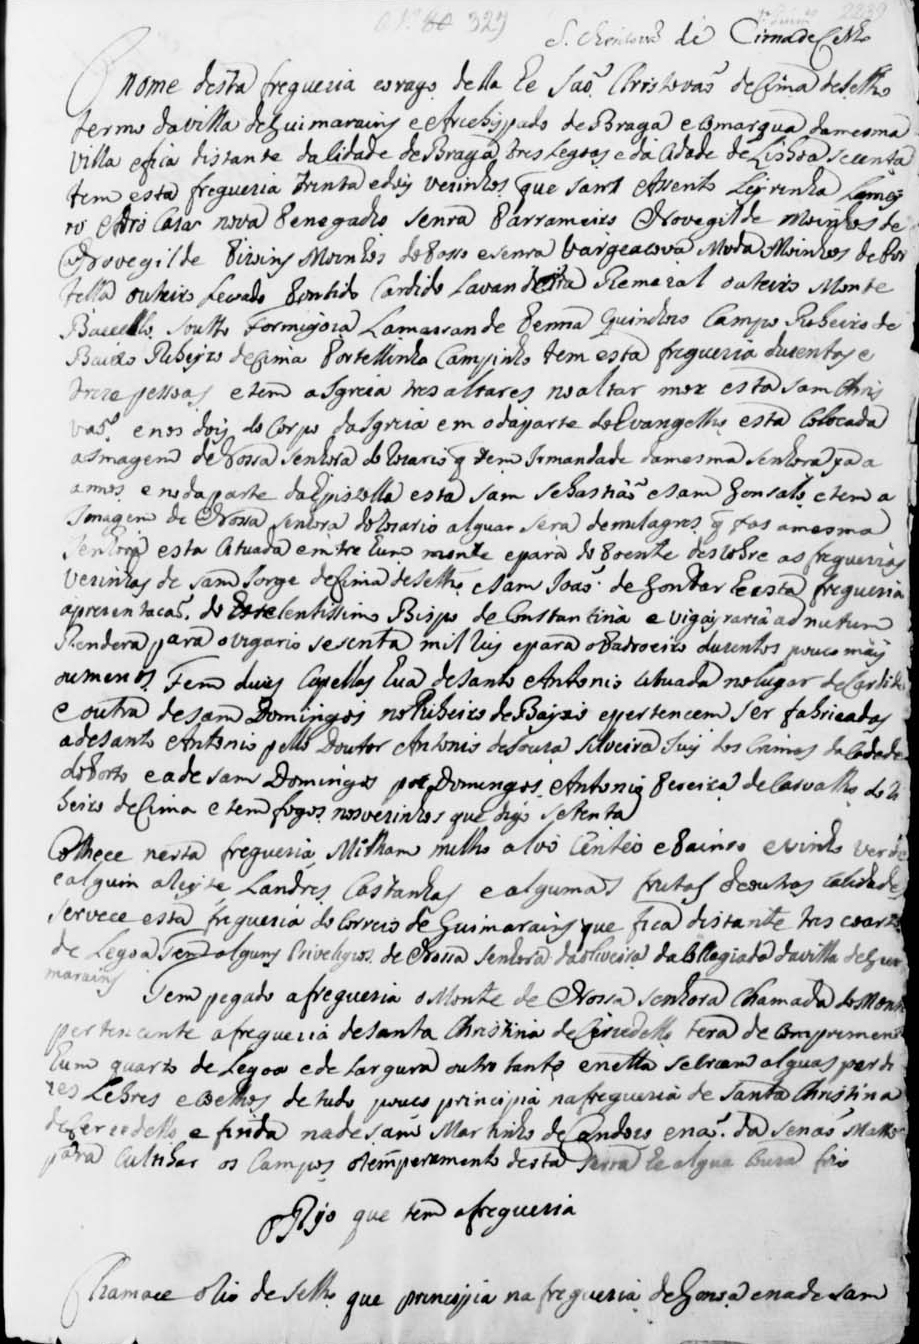 329 2239
S. Christovão de Cima de Celho
O nome desta freguezia e orago della he Saõ Christovaõ de Cima de Selho
termo da villa de Guimarains e Arcebispado de Braga e Comarqua da mesma
villa e fica distante da Cidade de Braga tres legoas e da Cidade de Lisboa secenta
tem esta freguezia trinta e dois vezinhos que sam Assento Leirinha
Casa nova Penegacho Senra Parrameiro Novegilde Moinhos de
Novegilde Moinhos do Poço e Senra Vargeacova Moinhos de Por
tella outeiro Lecado Pontido Cardido Lavandeira Remazal outeiro Monte
Bacello Soutto Formigoza Lamasrande Penna Quinchoso Campo Ribeiro de
Baixo Ribeiro de Cima Portellinha Campinho tem esta freguezia duzentas e
treze pessoas e tem a Igreia tres altares no altar mor esta Sam Chris
vaõ e nos dois do Corpo da Igreia em o da parte do Evangelho esta Colocada
a Imagem de Nossa Senhora do Rozario q tem Irmandade da mesma senhora ja a
annos e no da parte da Epistolla esta Sam Sebastiaõ e Sam Gonsalo e tem a
Imagem de Nossa Senhora do Rosario alguar sera de milagres q fas a mesma
Senhora esta cituada emtre hum monte e para do Poente descobre as freguezias
vezinhas de Sam Jorge de Cima de Selho e Sam Joaõ de Gondar he esta freguezia
aprezentacaõ do Excelentissimo Bispo de Constantina e vigayraria ad nutum
Rendera para o vigario sesenta mil reis e para o Padroeiro duzentos pouco mais
ou menos. Tem duas Capellas hua de Santo Antonio cituada no lugar de Cardido
e outra de Sam Domingos no Ribeiro de Baixo e pertencem ser fabricadas
a de Santo Antonio pello Doutor Antonio de Souza Silveira Juis dos Crimes da Cidade
do Porto e a de Sam Domingos por Domingos Antonio Pereira de Carvalho do Ri
beiro de Cima e tem fogos nos vezinhos que digo setenta
Colhece nesta freguezia Milham milho alvo Centeio e Painso e vinho verde
e algum azeite Landres Castanhas e algumas frutas de outras calidades
servece esta freguezia do Correio de Guimarains que fica distante tres coartos
de Legoa Tem alguns Privelegios de Nossa Senhora da Oliveira da Collegiada da villa de Gui
marains
Tem pegado a freguezia o Monte de Nossa Senhora Chamada do Monte
pertencente a freguezia de Santa Christina de Cerzedello tera de Comprimento
hum quarto de Legoa e de Largura outro tanto e nella se criam alguas perdi
zes Lebres e Coelhos de tudo pouco principia na freguezia de Santa Christina
de Cerzedello e finda na de Sam Martinho de Candozo e naõ da senaõ Matto
para Cultibar os Campos o temperamento desta Terra he algua Couza frio
O Rijo que tem a freguezia
Chamace o Rio de Selho que principia na freguezia de Gonsa e na de Sam